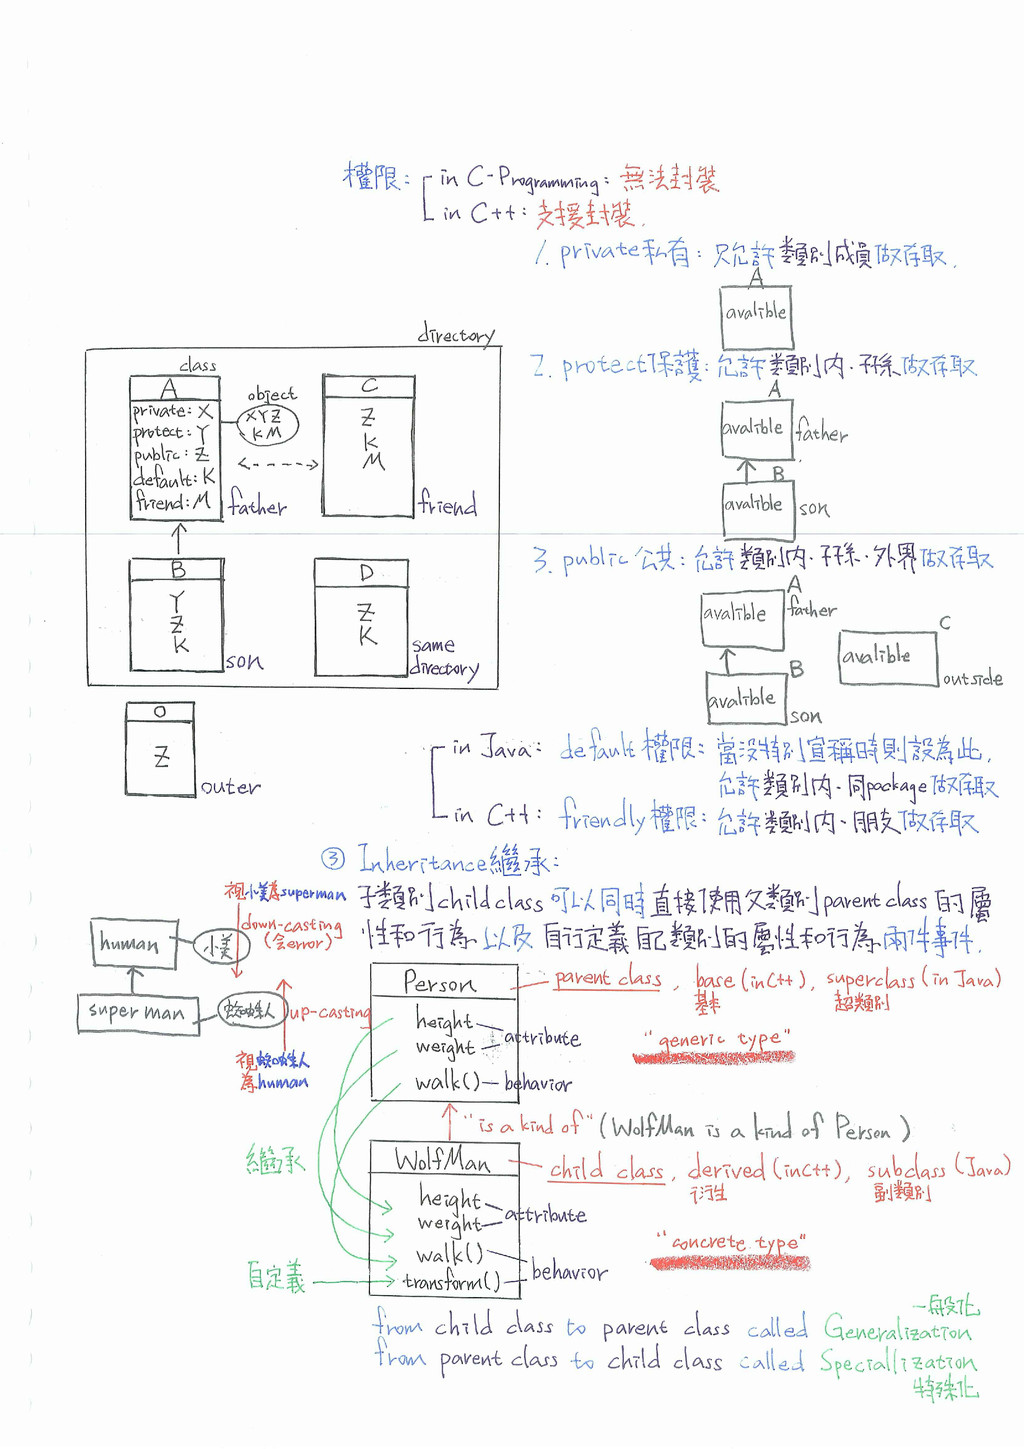 權限:
in C-Programming: 無法封裝
in C++: 支援封裝.
1. private私有: 只允許類別成員做存取.
A
avalible
2. protect保護: 允許類別內、子孫做存取
A
avalible father
B
avalible son
3. public公共: 允許類別內、子孫、外界做存取
A
avalible father
B
avalible son
C
avalible
outside
directory
class
A
private: X
protect: Y
public: Z
default: K
friend: M
father
object
XYZ
KM
C
Z
K
M
friend
B
Y
Z
K
son
D
Z
K
same
directory
O
Z
outer
in Java: default權限: 當沒特別宣稱時則設為此,
允許類別內、同package做存取
in C++: friendly權限: 允許類別內、朋友做存取
③ Inheritance繼承:
子類別child class可以同時直接使用父類別parent class的屬
性和行為以及自行定義自己類別的屬性和行為兩件事件.
視小美為superman
down-casting
(会error)
human
小美
superman
蜘蛛人
up-casting
視蜘蛛人
為human
Person
height
weight
attribute
walk()
behavior
parent class, base (in C++), superclass (in Java)
基本
超類別
"generic type"
"is a kind of" (WolfMan is a kind of Person)
繼承
WolfMan
height
weight
attribute
walk()
transform()
behavior
自定義
child class, derived (in C++), subclass (Java)
衍生
副類別
"concrete type"
一般化
from child class to parent class called Generalization
from parent class to child class called Speciallization
特殊化